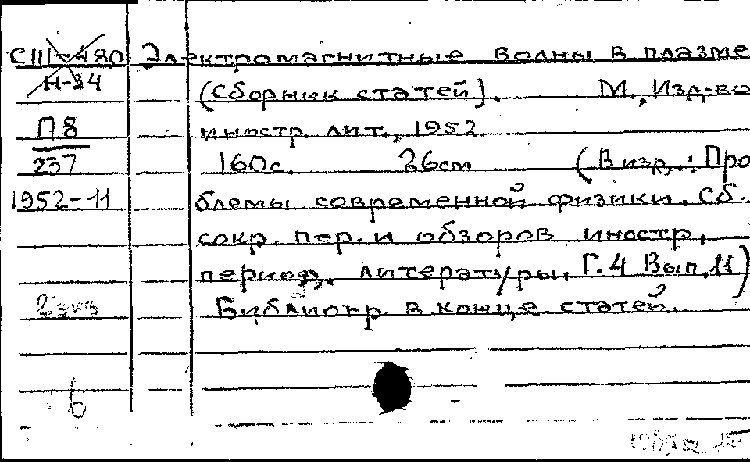 СIII-480 Электромагнитные волны в плазме
Н-34 (сборник статей). М., Изд-во
П8 иностр. лит., 1952
237 160с. 26см (В изд.: Про
1952-11 блемы современной физики. Сб.
сокр. пер. и обзоров иностр.
период. литературы. Г.4 Вып.11)
2 экз Библиогр. в конце статей.
б